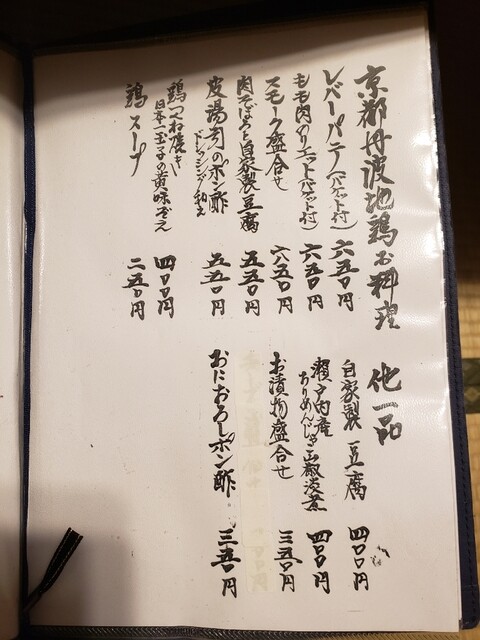 京都丹波地鶏お料理
レバーパテ(バケット付) 六五〇円
もも肉のリエット(バケット付) 六五〇円
スモーク盛合せ 六五〇円
肉そぼろと自家製豆腐 五五〇円
皮湯引のポン酢
ドレッシング和え 五五〇円
鶏つくね焼き
日本一玉子の黄味ぞえ 四〇〇円
鶏スープ 二五〇円
他一品
自家製豆腐 四〇〇円
瀬戸内産
ちりめんじゃこ山椒炊 四〇〇円
お漬物盛合せ 三五〇円
おにおろしポン酢 三五〇円